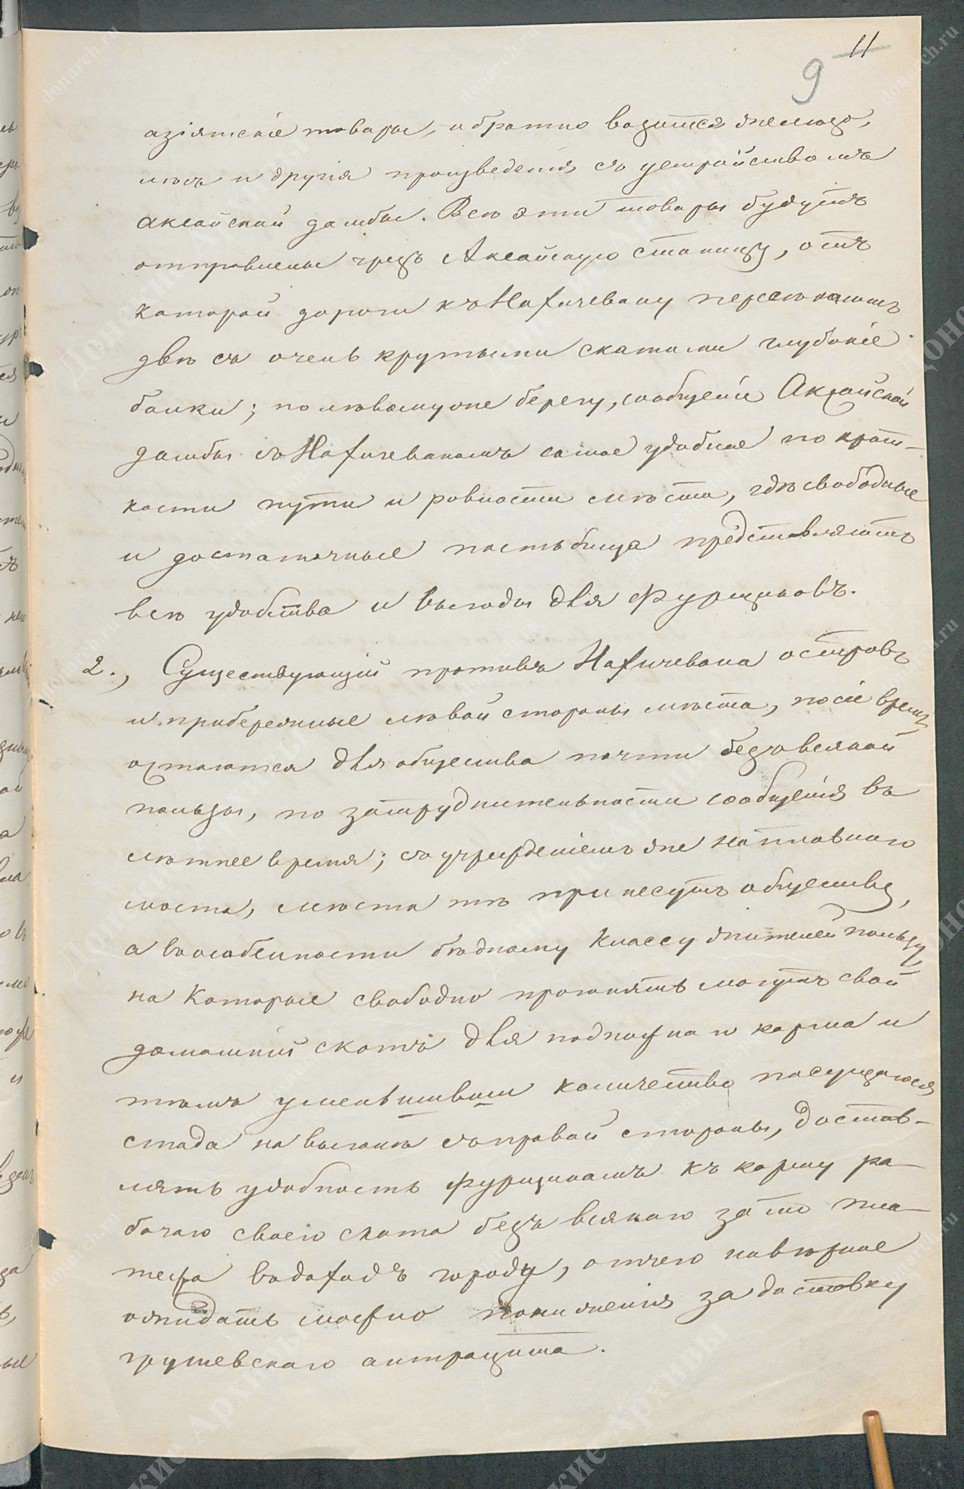 11
9
азіятскіе товары, и обратно возится железо,
лѣсъ и другія произведенія съ устройствомъ
Аксайской дамбы. Всѣ эти товары будутъ
отправлены чрезъ Аксайскую станицу, отъ
которой дороги къ Нахичевану пересѣкаютъ
двѣ съ очень крутыми скатами глубокіе
балки; по лѣвому же берегу, сообщеніе Аксайской
дамбы съ Нахичеваномъ самое удобное по крат-
кости пути и ровности мѣста, гдѣ свободные
и достаточные пастьбища представляютъ
всѣ удобства и выгоды для фурщиковъ.
2., Существующій противъ Нахичевана островъ
и прибережные лѣвой стороны мѣста, посіе время
остаются для общества почти безъ всякой
пользы, по затруднительности сообщенія въ
лѣтнее время; съ учрежденіемъ же наплавнаго
моста, мѣста тѣ принесутъ обществу,
а въ особенности бѣдному классу жителей пользу,
на которые свободно прогонять могутъ свой
домашній скотъ для подножнаго корма и
тѣмъ уменьшивши количество пасущагося
стада на выгонѣ съ правой стороны, достав-
лять удобность фурщикамъ къ корму ра-
бочаго своего скота безъ всякаго за то пла-
тежа въ доходъ городу, отчего навѣрное
ожидать можно пониженія за доставку
грушевскаго антрацита.